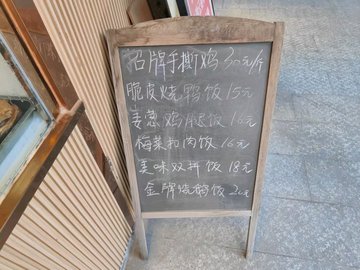 招牌手撕鸡 30元/斤
脆皮烧鸭饭 15元
姜葱鸡腿饭 16元
梅菜扣肉饭 16元
美味双拼饭 18元
金牌烧鹅饭 20元